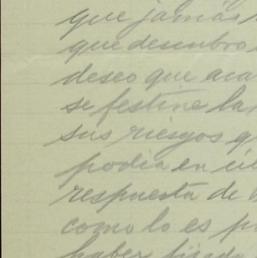 que jamás
que descubro
deseo que aca
se festine la
sus riesgos q
podia en
respuesta de
como lo es p
haber fijado